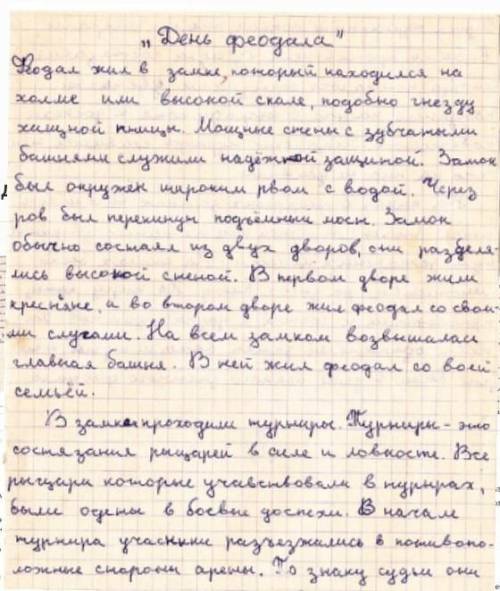 „День феодала"
Феодал жил в замке, который находился на
холме или высокой скале, подобно гнезду
хищной птицы. Мощные стены с зубчатыми
башнями служили надёжной защитой. Замок
был окружен широким рвом с водой. Через
ров был перекинут подъёмный мост. Замок
обычно состоял из двух дворов, они разделя-
лись высокой стеной. В первом дворе жили
крестьяне, а во втором дворе жил феодал со свои-
ми слугами. На всем замком возвышалась
главная башня. В ней жил феодал со всей
семьёй.
В замке проходили турниры. Турниры - это
состязания рыцарей в силе и ловкости. Все
рыцари которые учавствовали в турнирах,
были одеты в боевые доспехи. В начале
турнира учасники разъезжались в потивопо-
ложные стороны арены. По знаку судьи они